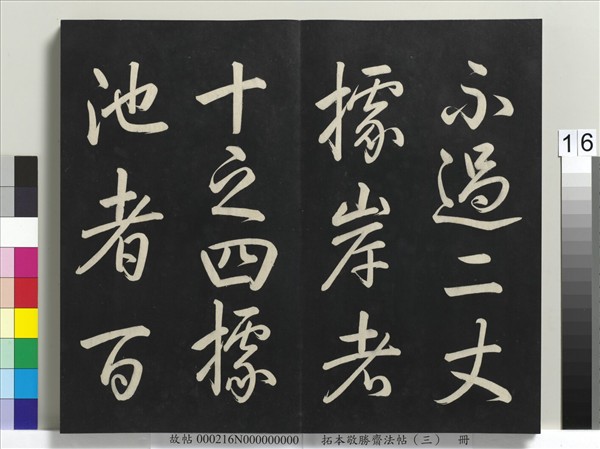 不過二丈
據岸者
十之四據
池者百
16
故帖 000216N000000000 拓本敬勝齋法帖（三） 冊